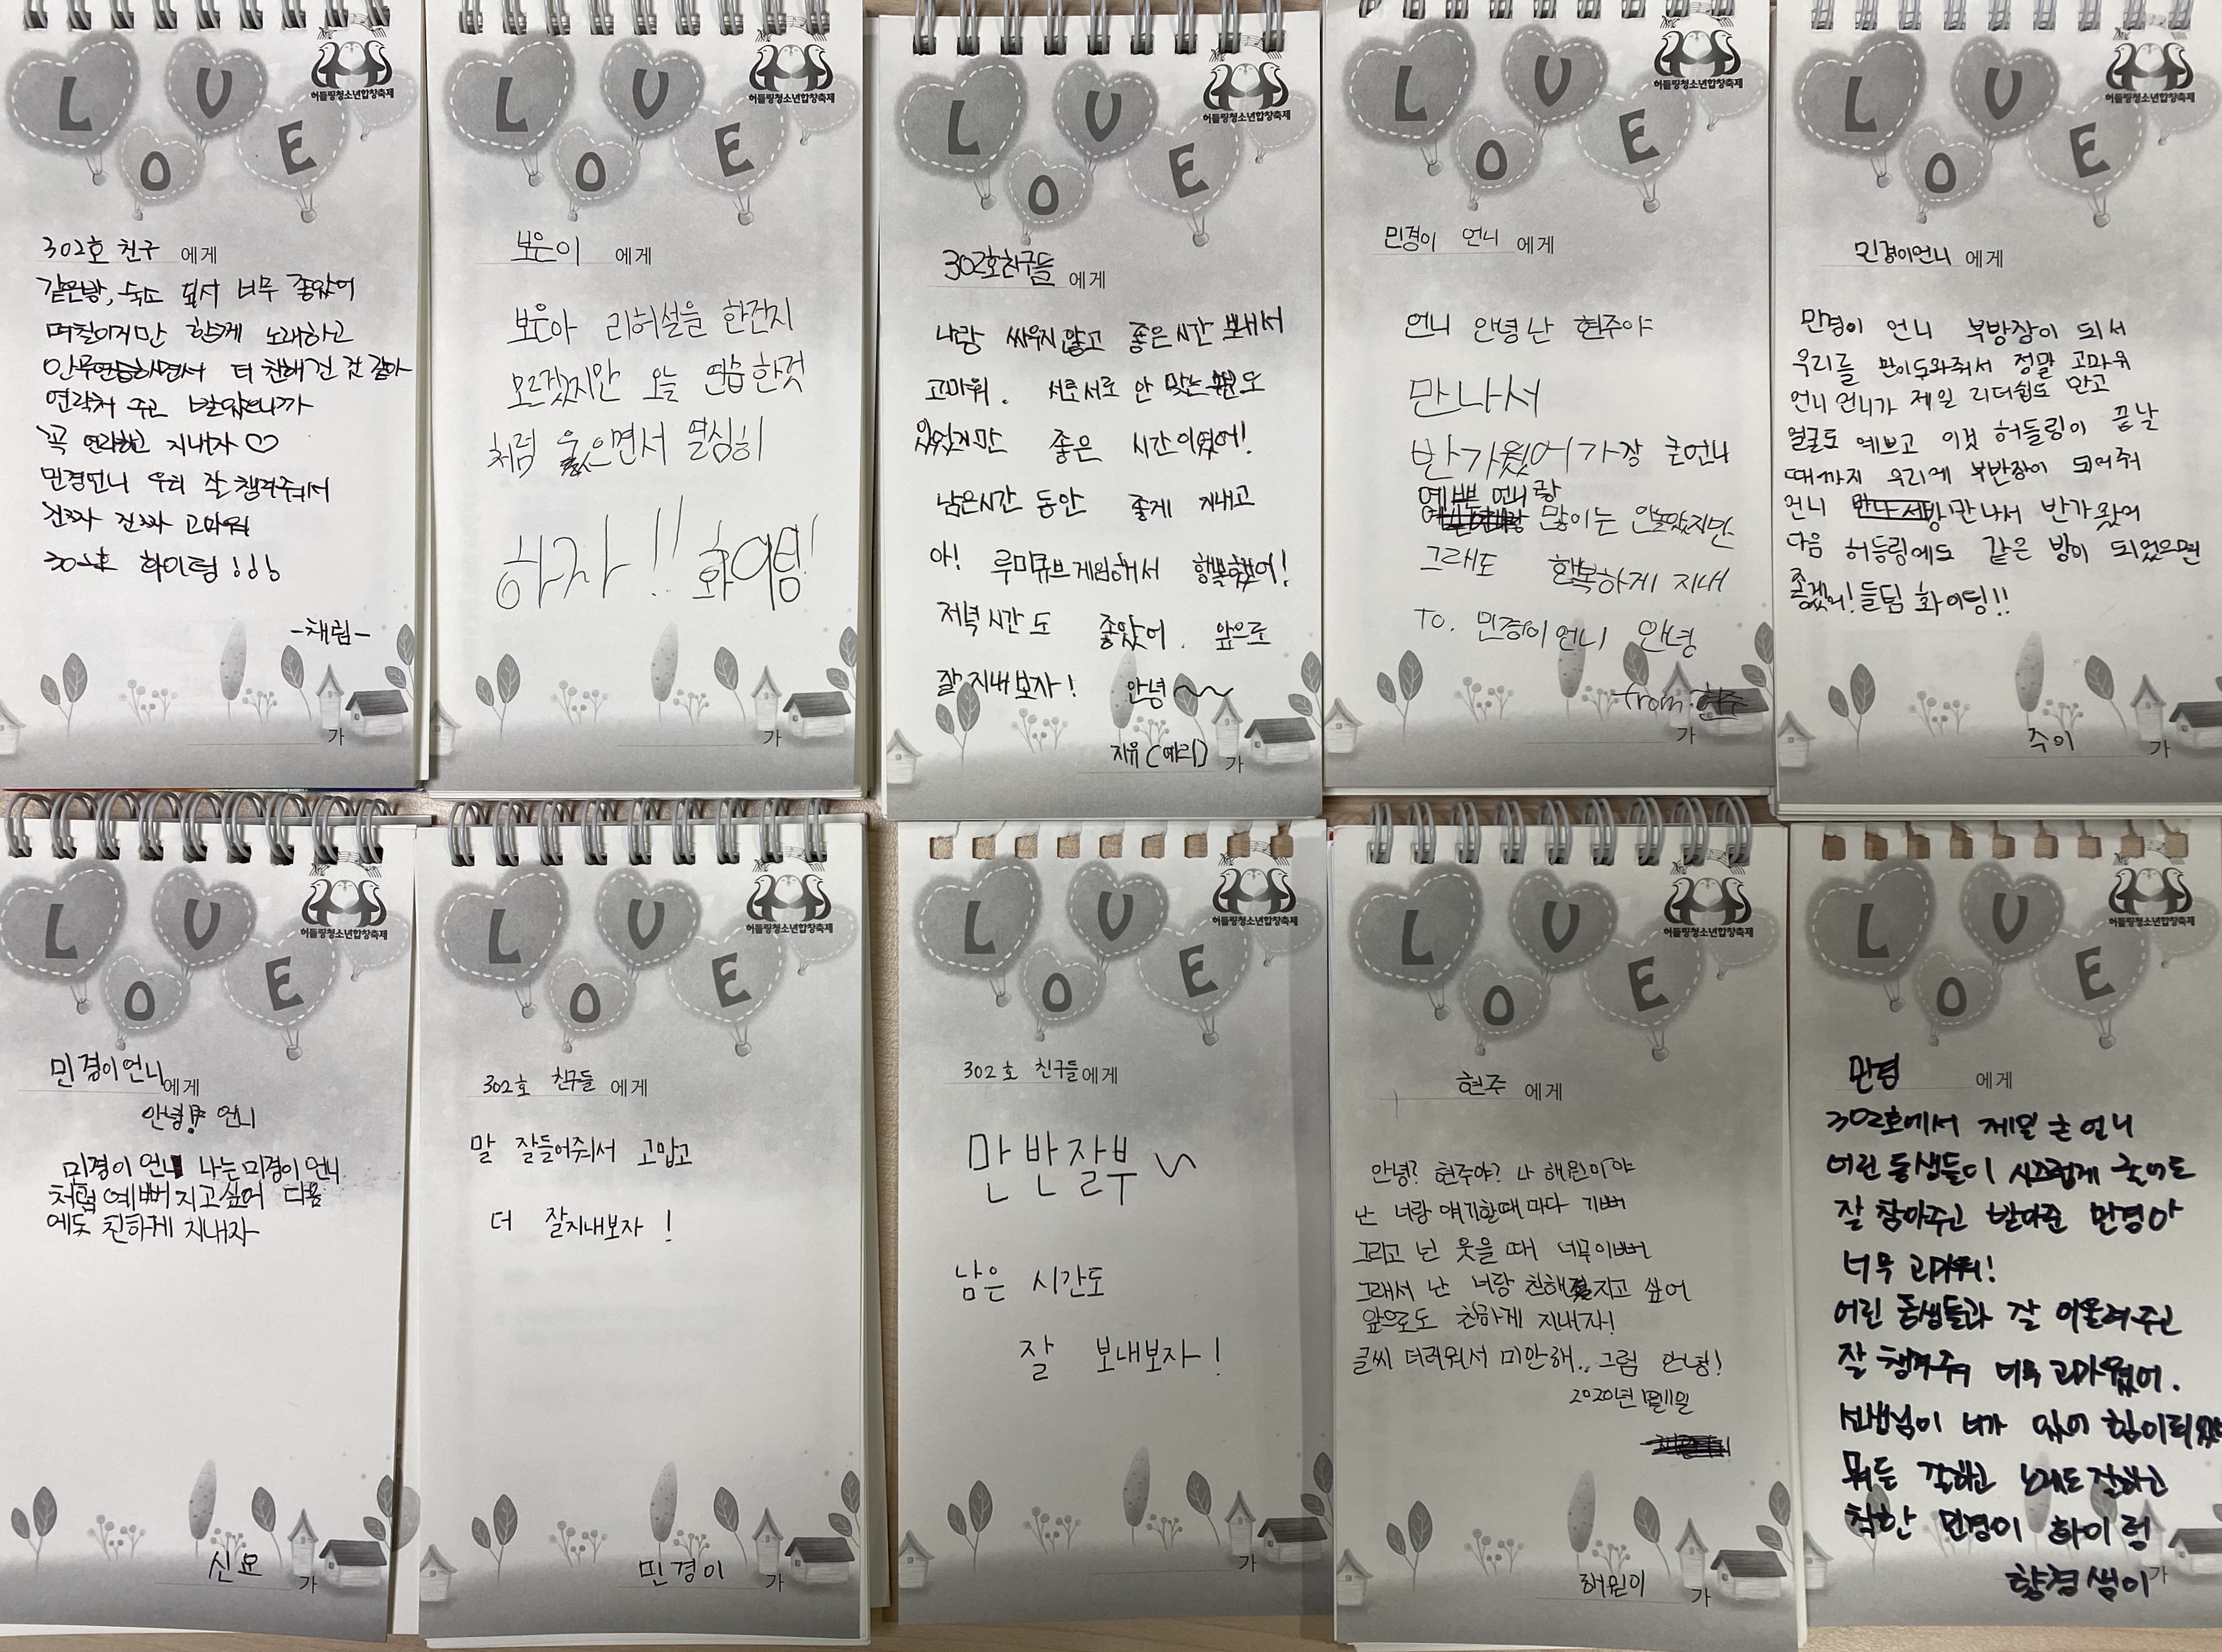 L O V E
허들링청소년합창축제
302호 친구 에게
같은방, 숙소 돼서 너무 좋았어
며칠이지만 함께 노래하고
안무연습하면서 더 친해진 것 같아
연락처 주고 받았으니까
꼭 연락하고 지내자 ♡
민경언니 우리 잘 챙겨줘서
진짜 진짜 고마워
302호 화이팅 !!!
-채림-
가
L O V E
허들링청소년합창축제
보은이 에게
보은아 리허설을 한진지
모르겠지만 오늘 연습한것
처럼 웃으면서 열심히
하자!! 화이팅!
가
L O V E
허들링청소년합창축제
302호친구들 에게
나랑 싸우지않고 좋은시간 보내서
고마워. 서로서로 안 맞는 도
있었지만 좋은 시간이였어!
남은시간 동안 좋게 지내고
아! 루미큐브게임해서 행복했어!
저녁시간도 좋았어. 앞으로
잘지내보자! 안녕~~
지유(예리) 가
L O V E
허들링청소년합창축제
민경이 언니 에게
언니 안녕 난 현주야
만나서
반가웠어 가장 큰언니
예쁜 언니랑
많이는 안놀았지만
그래도 행복하게 지내
To. 민경이언니 안녕
from 현주
가
L O V E
허들링청소년합창축제
민경이언니 에게
민경이 언니 부방장이 되서
우리를 많이도와줘서 정말 고마워
언니 언니가 제일 리더쉽도 많고
얼굴도 예쁘고 이것 허들링이 끝날
때까지 우리에 부반장이 되어줘
언니 만나서 반가웠어
다음 허들링에도 같은 방이 되었으면
좋겠어! 들팀 화이팅!!
주이 가
L O V E
허들링청소년합창축제
민경이언니 에게
안녕! 언니
민경이 언니 나는 민경이 언니
처럼 예뻐지고싶어 다음
에도 친하게 지내자
신묘 가
L O V E
허들링청소년합창축제
302호 친구들 에게
말 잘들어줘서 고맙고
더 잘지내보자 !
민경이 가
L O V E
허들링청소년합창축제
302호 친구들에게
만반잘부~
남은 시간도
잘 보내보자!
가
L O V E
허들링청소년합창축제
현주 에게
안녕? 현주야? 나 해원이야
난 너랑 얘기할때마다 기뻐
그리고 넌 웃을 때 너무이뻐
그래서 난 너랑 친해지고 싶어
앞으로도 친하게 지내자!
글씨 더러워서 미안해.. 그럼 안녕!
2020년 1월11일
해원이 가
L O V E
허들링청소년합창축제
민경 에게
302호에서 제일 큰 언니
어린 동생들이 시끄럽게 굴어도
잘 참아주고 받아준 민경아
너무 고마워!
어린 동생들과 잘 어울려주고
잘 챙겨줘 너무 고마웠어.
선생님이 너가 있어 힘이되었
뭐든 잘하고 노래도 잘하고
착한 민경이 화이팅
향경쌤이 가